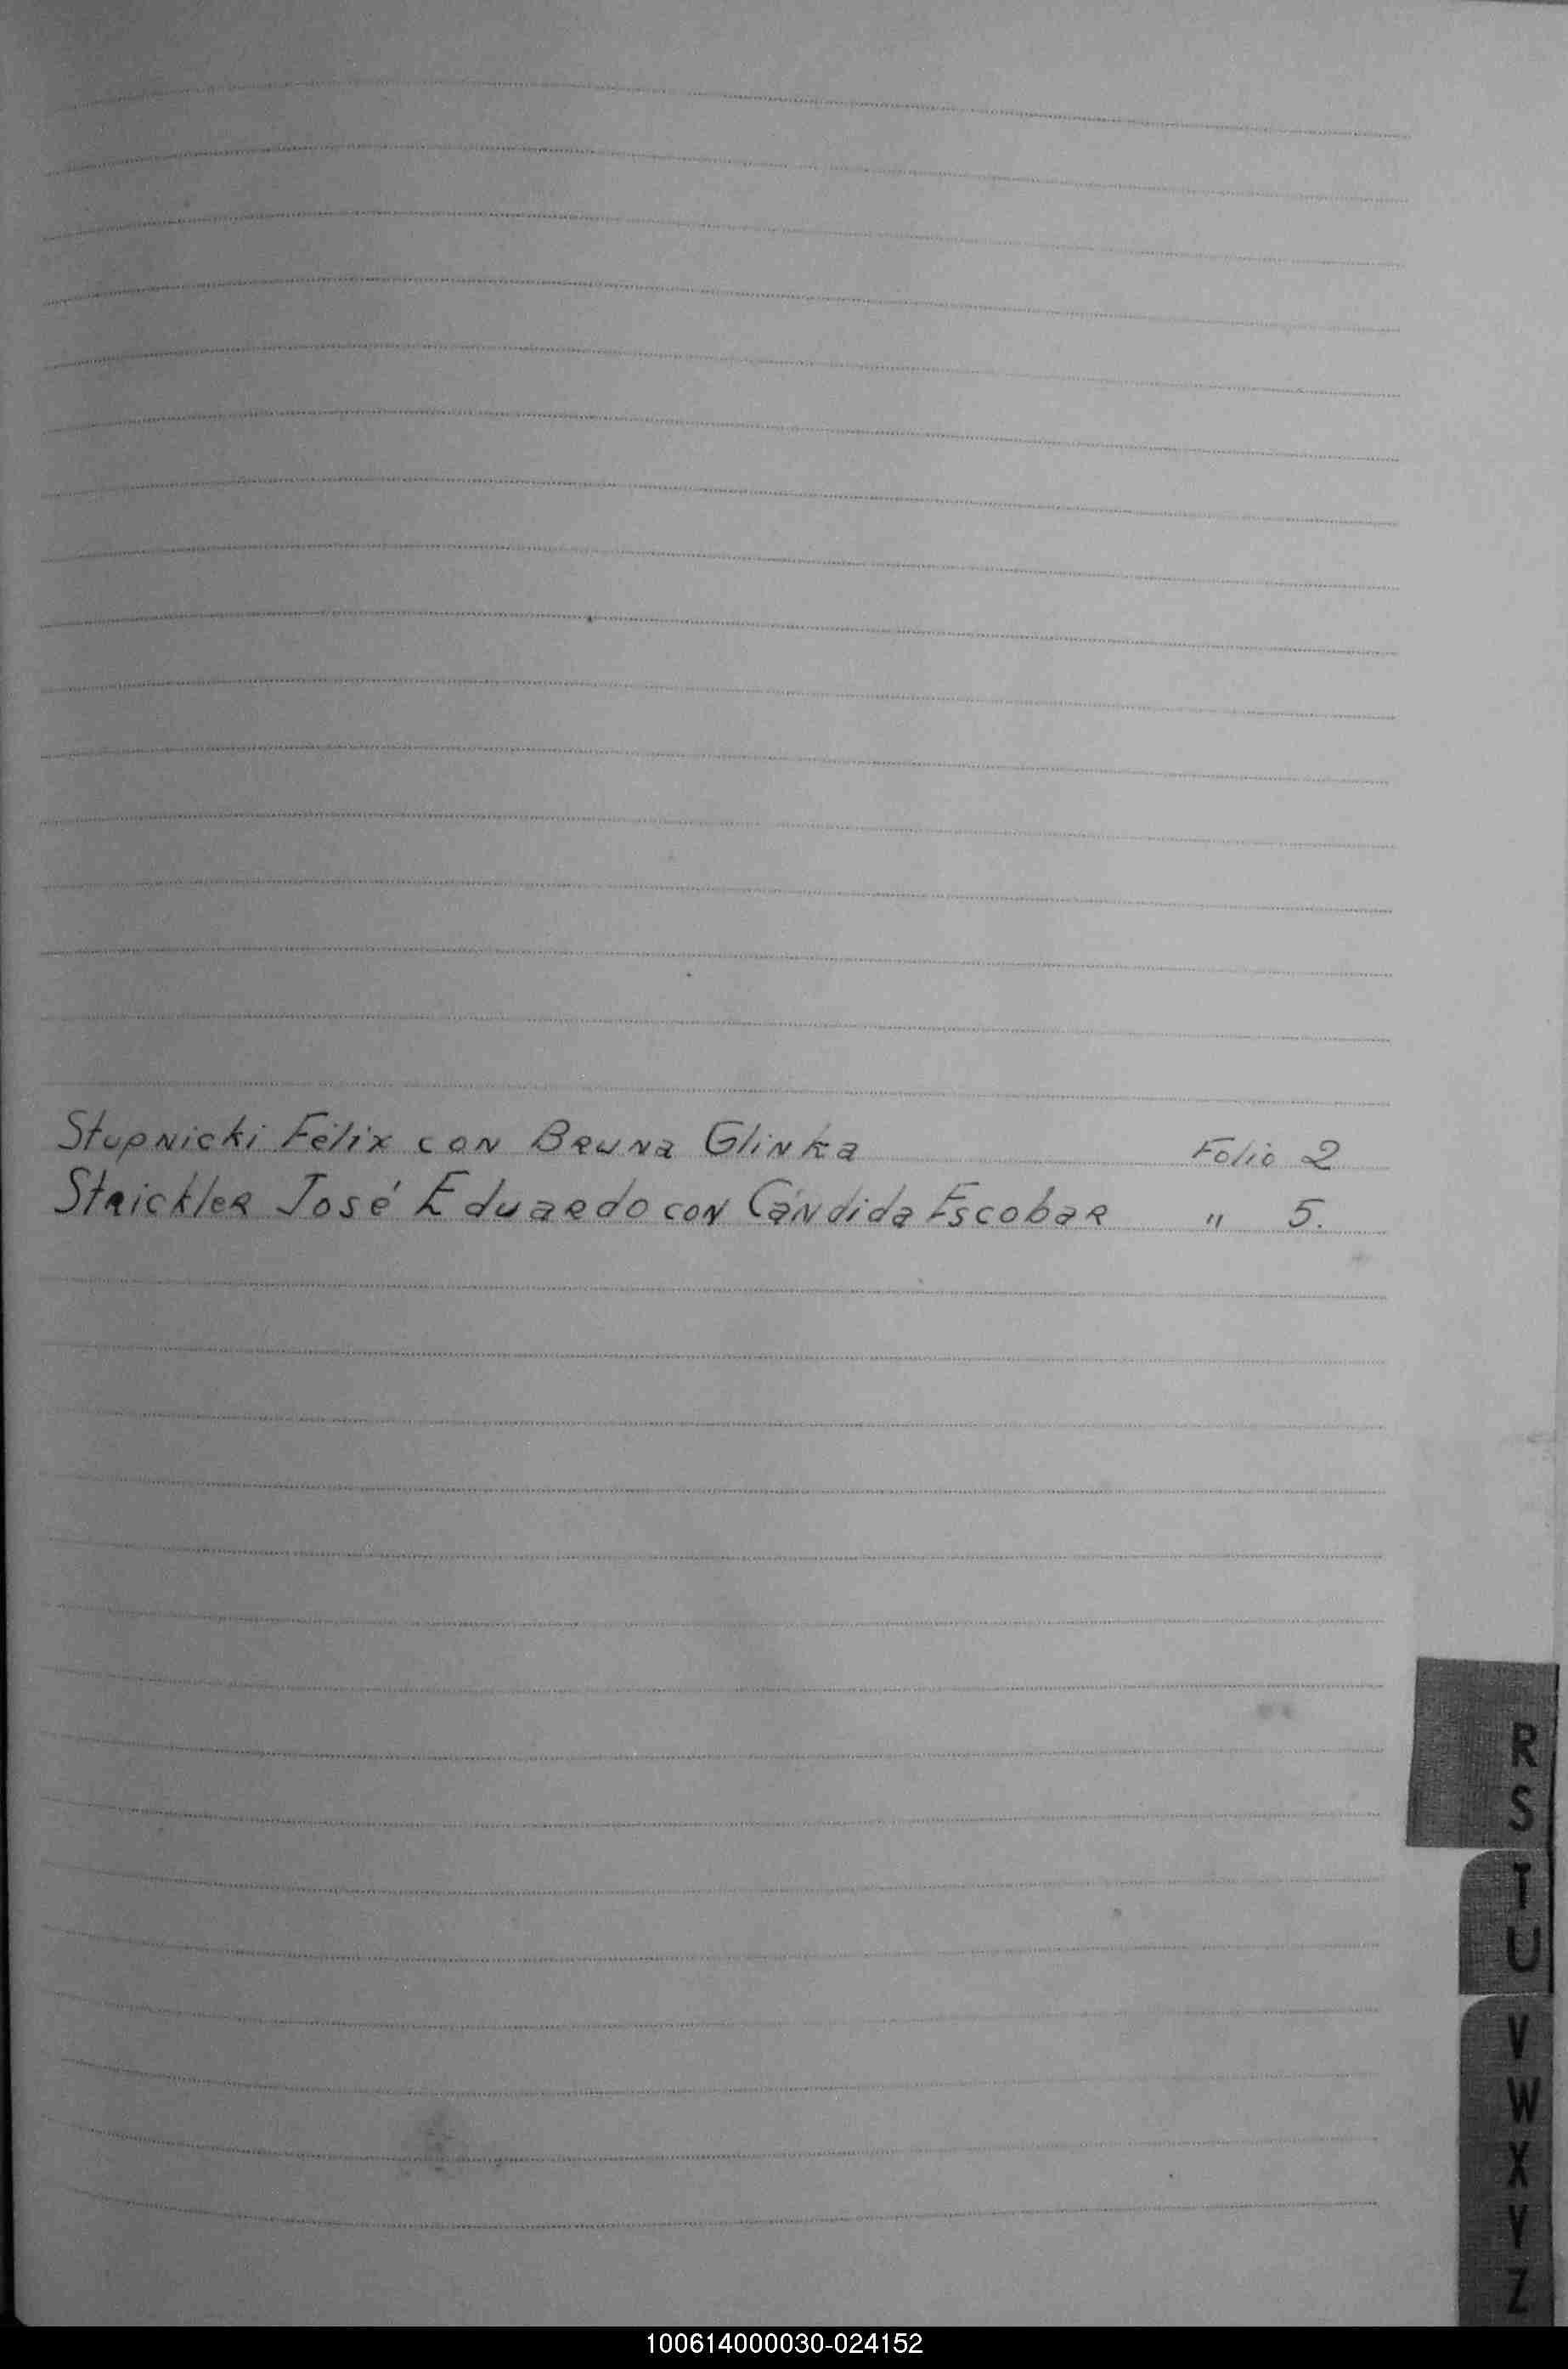 Stupnicki Félix con Bruna Glinka Folio 2
Strickler José Eduardo con Cándida Escobar " 5.
R
S
T
U
V
W
X
Y
Z
100614000030-024152